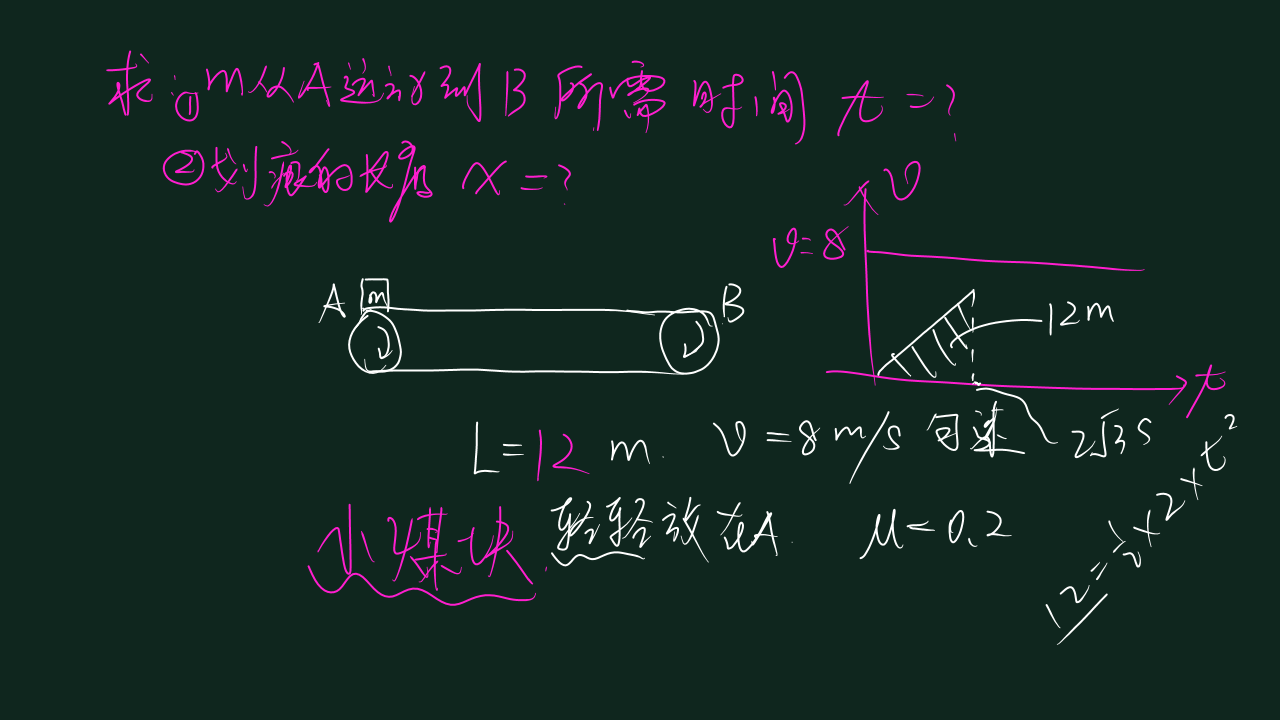 求：①m从A运动到B所需时间 t=?
②划痕的长度 x=?
v
v=8
A m B
12m
t
L=12 m. v=8m/s 匀速 2√3 s
小煤块. 轻轻放在A. μ=0.2
12=½×2×t²